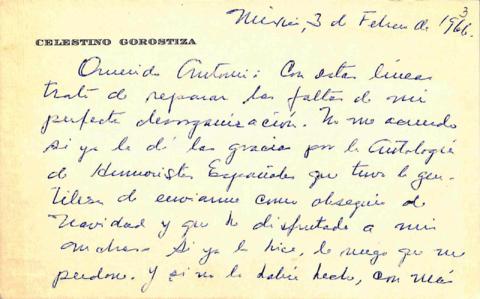 3
México, 3 de Febrero de 1966.
CELESTINO GOROSTIZA
Querido Antonio: Con estas líneas
trato de reparar las faltas de mi
perfecta desorganización. No me acuerdo
si ya le dí las gracias por la Antología
de Humoristas Españoles que tuvo la gen-
tileza de enviarme como obsequio de
Navidad y que he disfrutado a mis
anchas. Si ya lo hice, le ruego que me
perdone. Y si no lo había hecho, con más